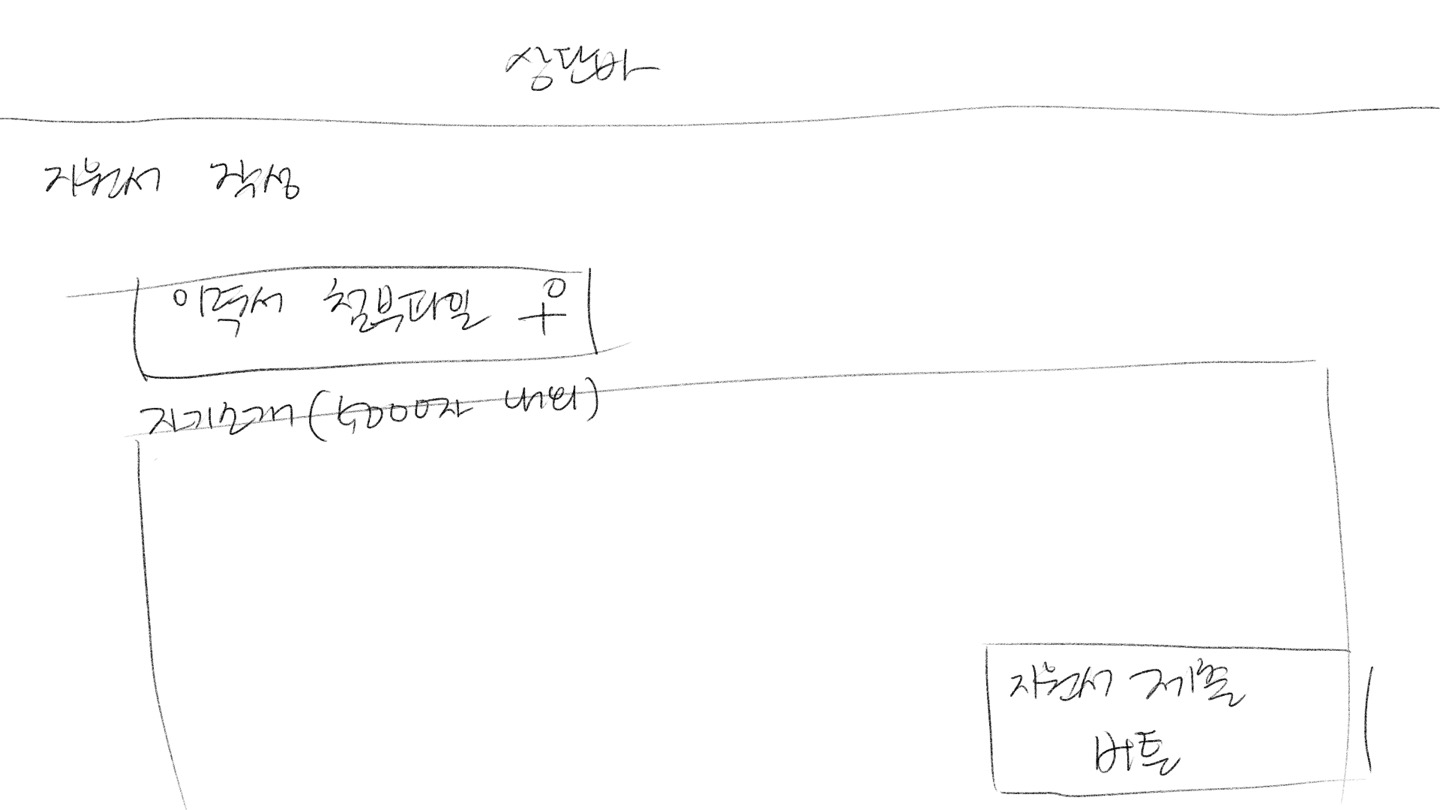 상단바
지원서 작성
이력서 첨부파일
자기소개 (5000자 내외)
지원서 제출
버튼